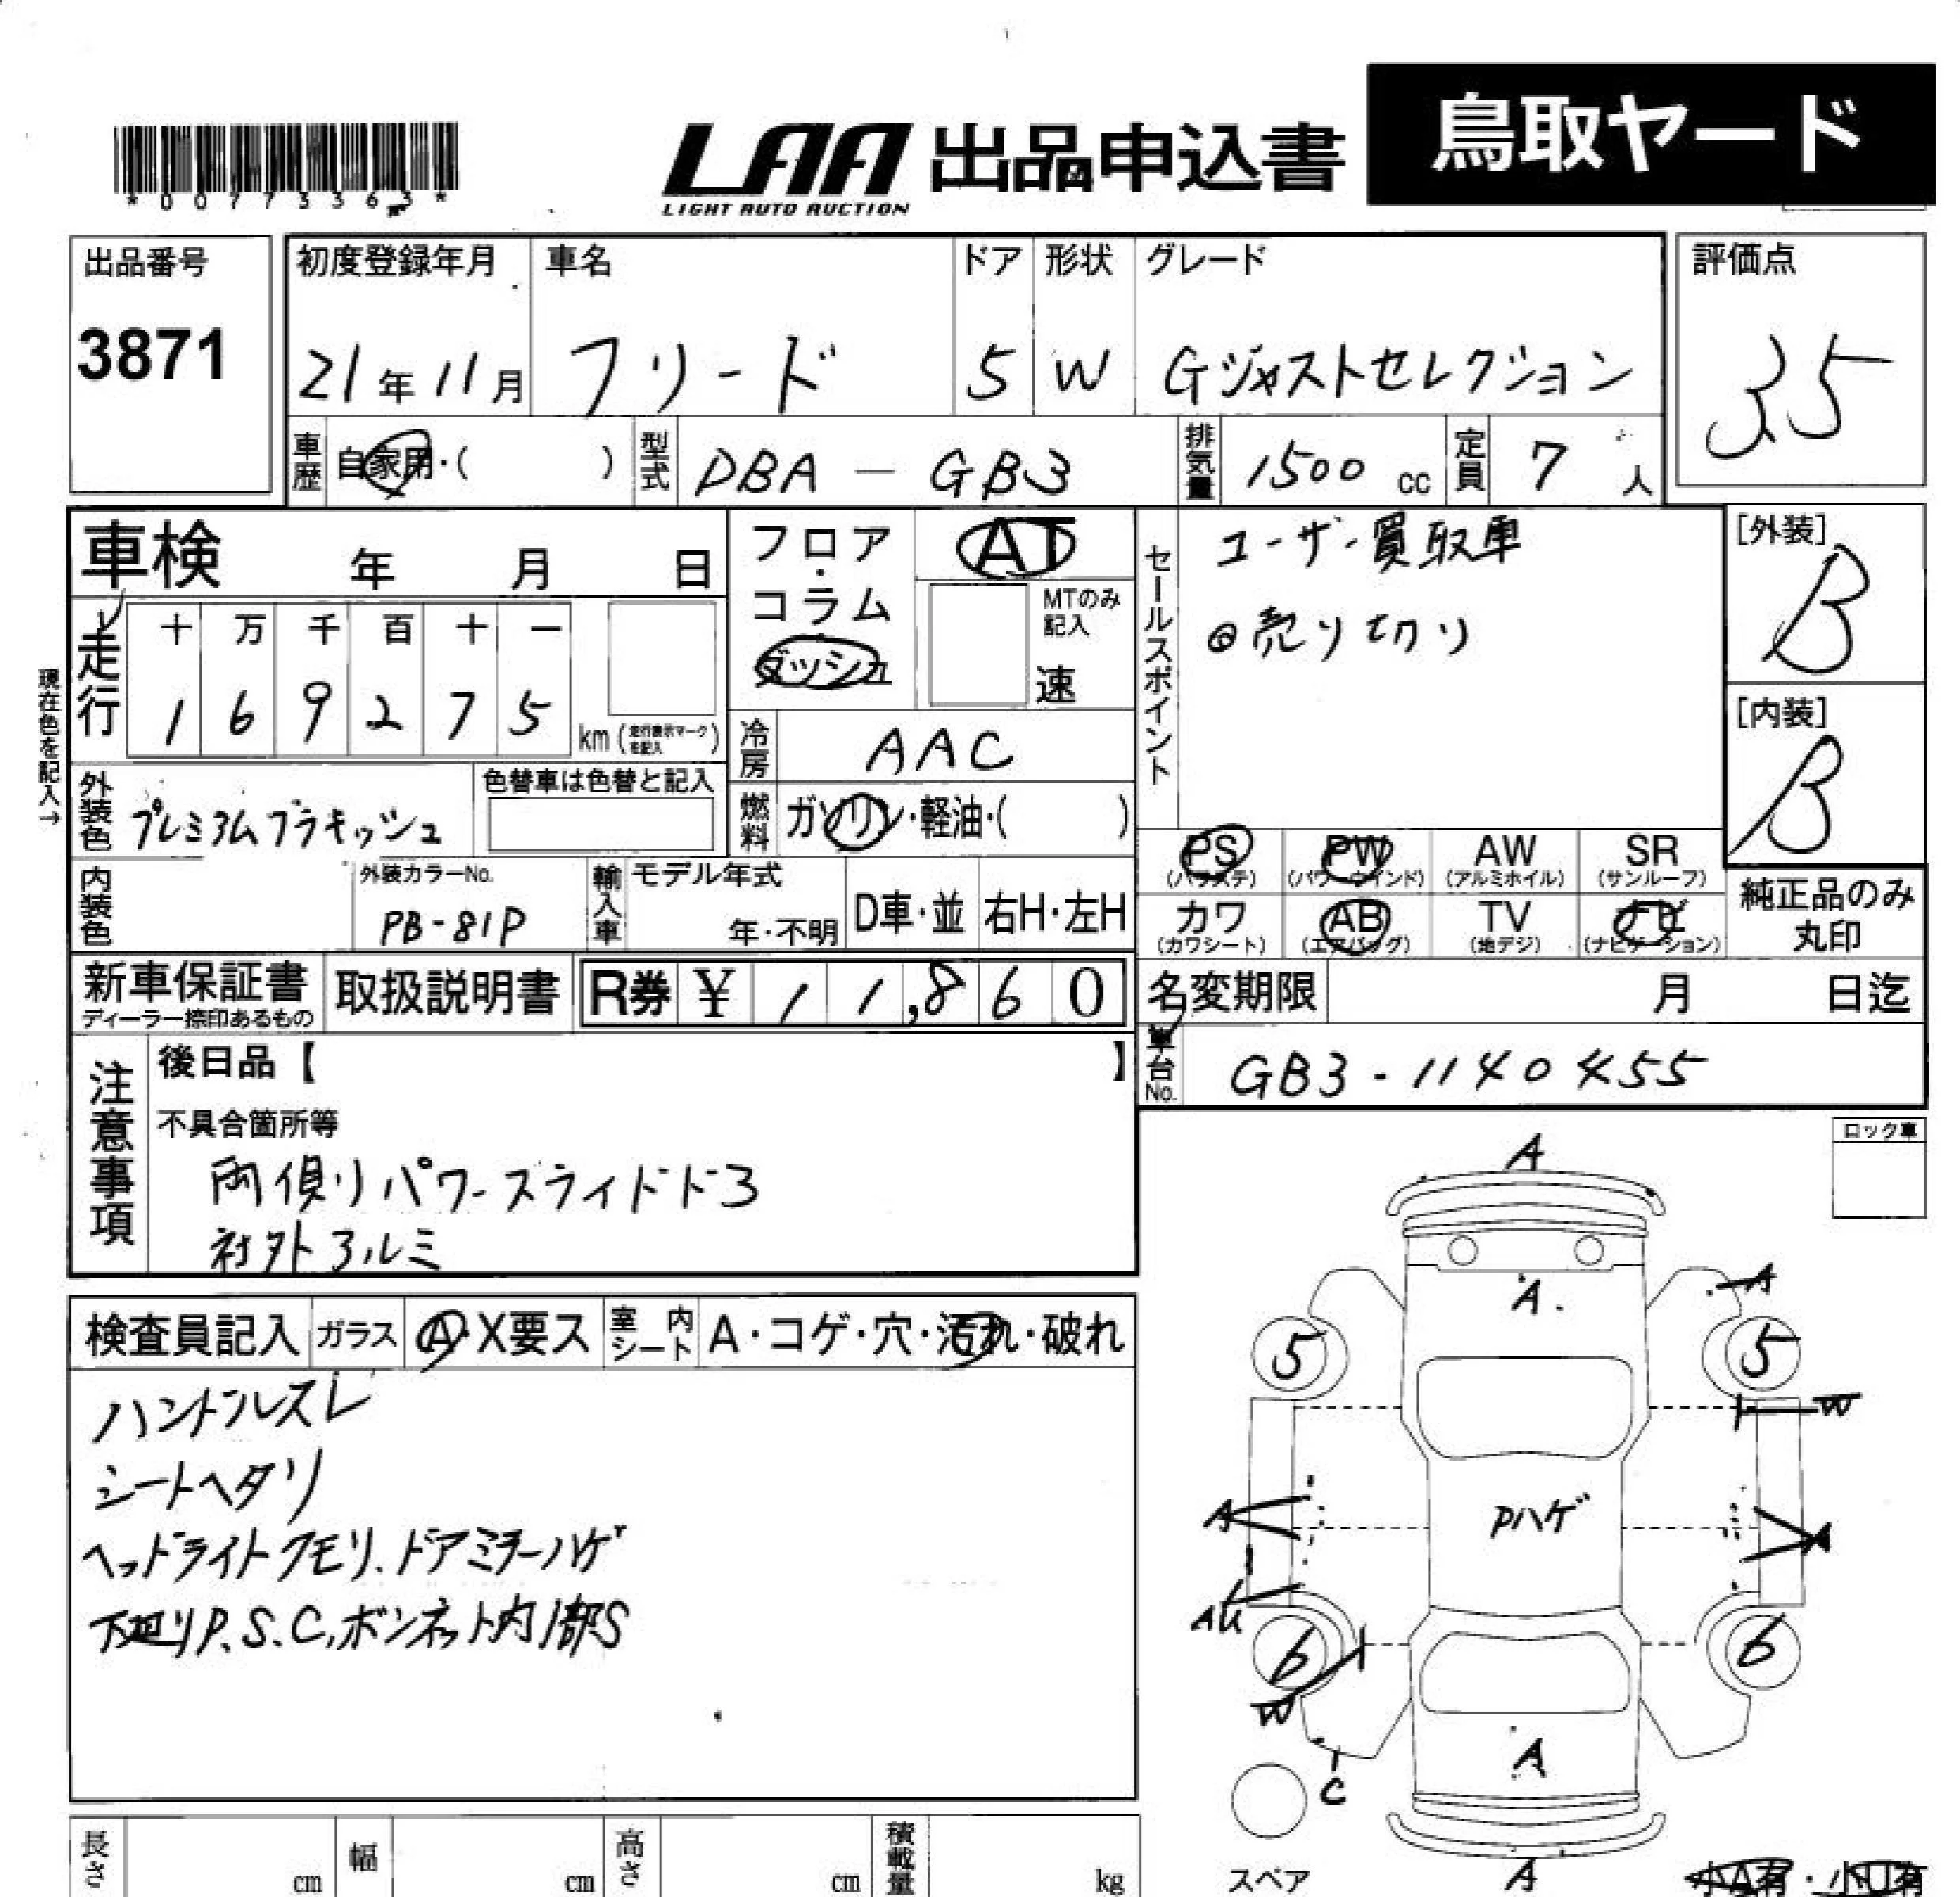 *00773363*
LAA 出品申込書 鳥取ヤード
LIGHT AUTO AUCTION
出品番号 初度登録年月 車名 ドア 形状 グレード 評価点
3871 21年11月 フリード 5 W Gジャストセレクション 3.5
車歴 自家用・( ) 型式 DBA - GB3 排気量 1500 cc 定員 7 人
車検 年 月 日
フロア・コラム・ダッシュ AT
MTのみ記入 速
セールスポイント
ユーザー買取車
◎売り切り
[外装] B
[内装] B
現在色を記入→
走行 十 万 千 百 十 一
1 6 9 2 7 5 km (走行表示マークを記入)
冷房 AAC
外装色 プレミアムブラキッシュ 色替車は色替と記入
燃料 ガソリン・軽油・( )
PS (パワステ) PW (パワーウインド) AW (アルミホイル) SR (サンルーフ)
カワ (カワシート) AB (エアバッグ) TV (地デジ) ナビ (ナビゲーション)
純正品のみ丸印
内装色 外装カラーNo. PB-81P 輸入車 モデル年式 年・不明 D車・並 右H・左H
新車保証書 ディーラー捺印あるもの 取扱説明書 R券 ¥ 11,860
名変期限 月 日迄
車台No. GB3-1140455
注意事項
後日品【 】
不具合箇所等
両側リパワースライドドア
社外アルミ
ロック車
検査員記入 ガラス A・X要ス 室内シート A・コゲ・穴・汚れ・破れ
ハンドルスレ
シートヘタリ
ヘッドライトクモリ.ドアミラーハゲ
下廻リP.S.C,ボンネット内1部S
A
A
A
5 5
W
A Pハゲ A
AU
6 6
W
A
C
スペア A 小A有・小U有
長さ cm 幅 cm 高さ cm 積載量 kg